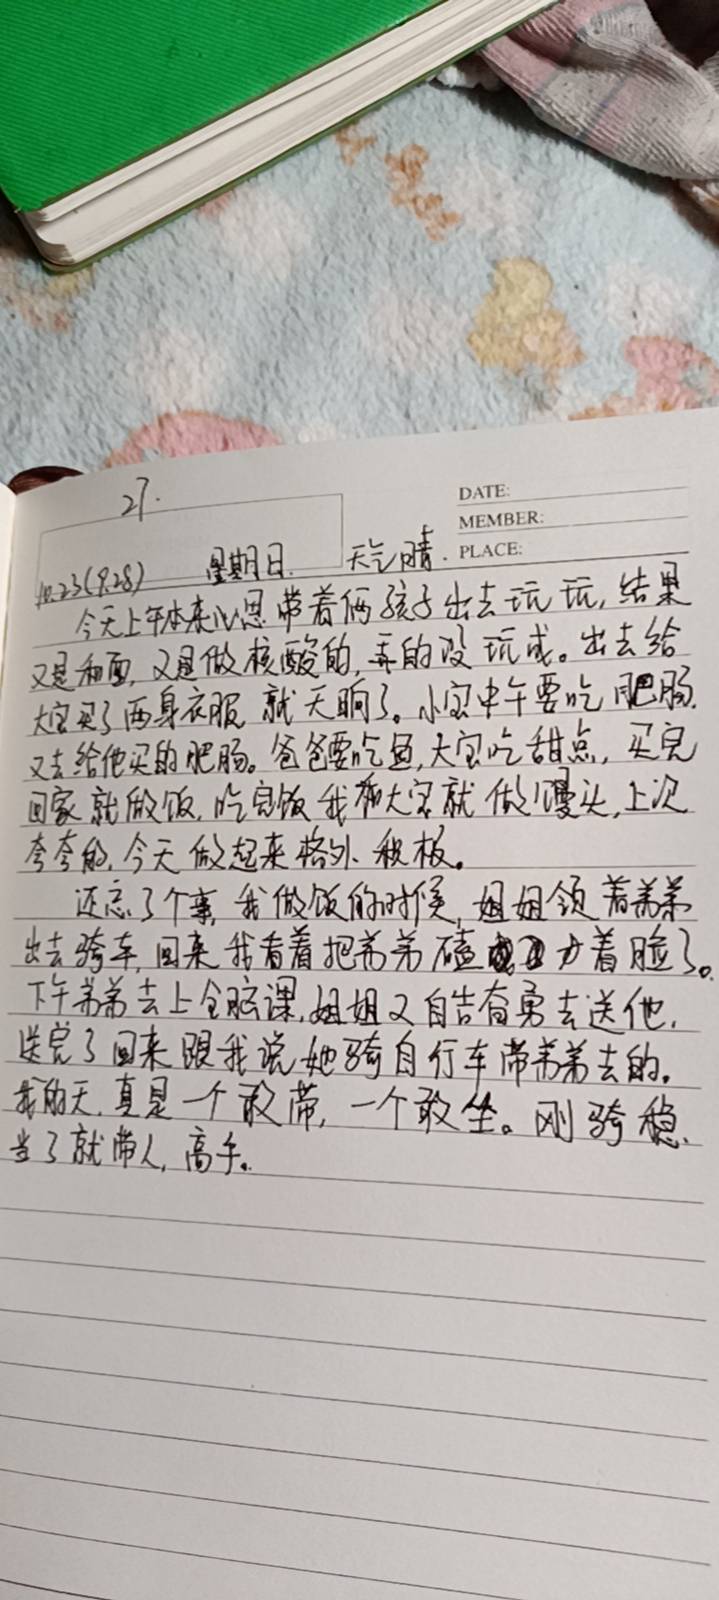 27.
DATE:
MEMBER:
PLACE:
10.23(9.28) 星期日. 天气晴.
今天上午本来心思带着俩孩子出去玩玩,结果
又是和面,又是做核酸的,弄的没玩成。出去给
大宝买了两身衣服就天晌了。小宝中午要吃肥肠,
又去给他买的肥肠。爸爸要吃鱼,大宝吃甜点,买完
回家就做饭,吃完饭我和大宝就做馒头,上次
夸夸的,今天做起来格外积极。
还忘了个事,我做饭的时候,姐姐领着弟弟
出去骑车,回来我看着把弟弟磕着脸了。
下午弟弟去上全脑课,姐姐又自告奋勇去送他,
送完了回来跟我说她骑自行车带弟弟去的。
我的天,真是一个敢带,一个敢坐。刚骑稳
当了就带人,高手。